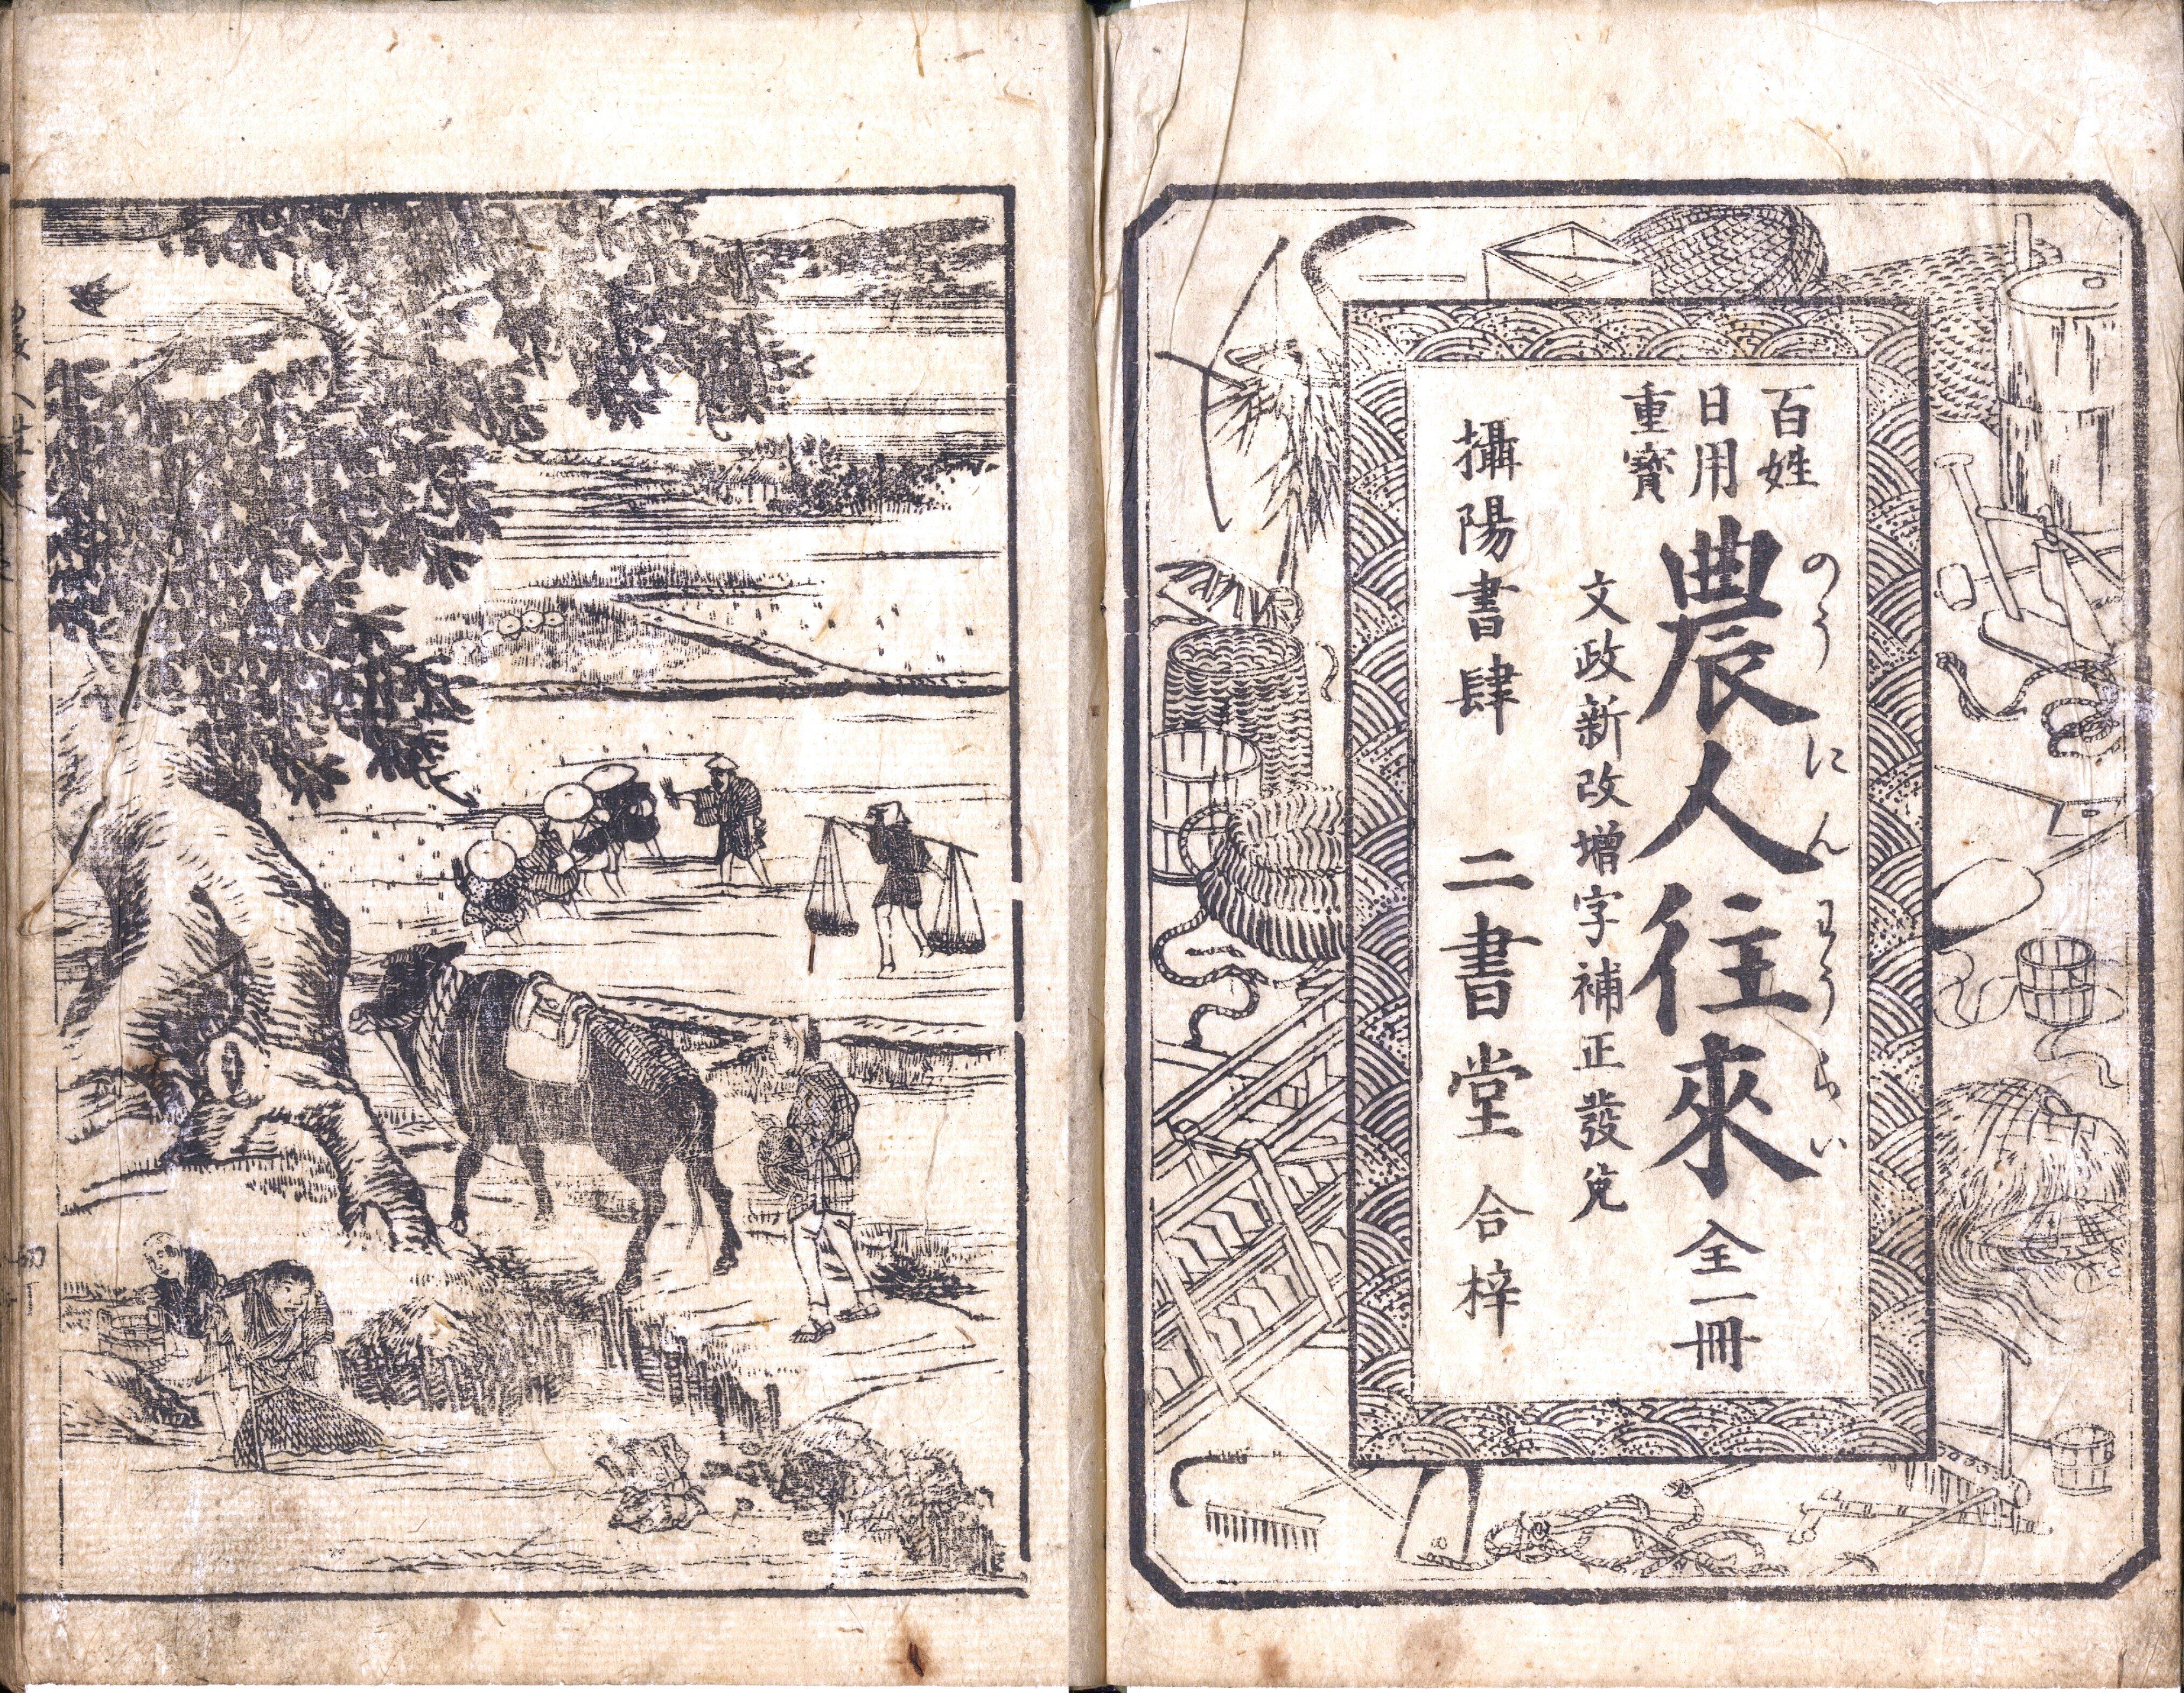 百姓
日用
重寳
農人往來 全一冊
のうにんわうらい
文政新改增字補正發兌
攝陽書肆 二書堂 合梓